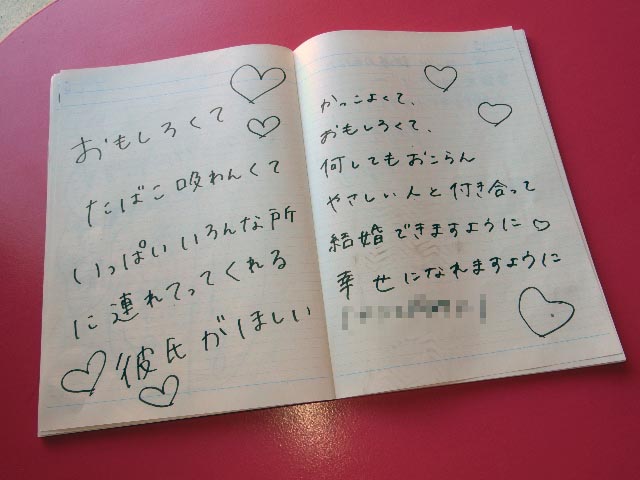 おもしろくて
たばこ吸わんくて
いっぱいいろんな所
に連れてってくれる
彼氏がほしい
かっこよくて、
おもしろくて、
何してもおこらん
やさしい人と付き合って
結婚できますように
幸せになれますように